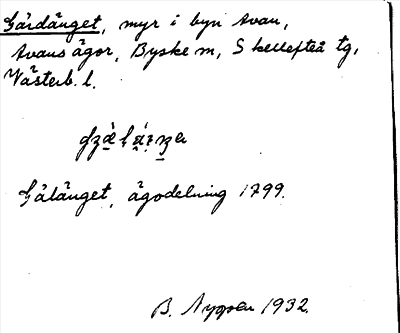 Gärdänget, myr i byn Avan,
Avans ägor, Byske sn, Skellefteå tg,
Västerb. l.
Gälänget, ägodelning 1799.
B. Nygren 1932.